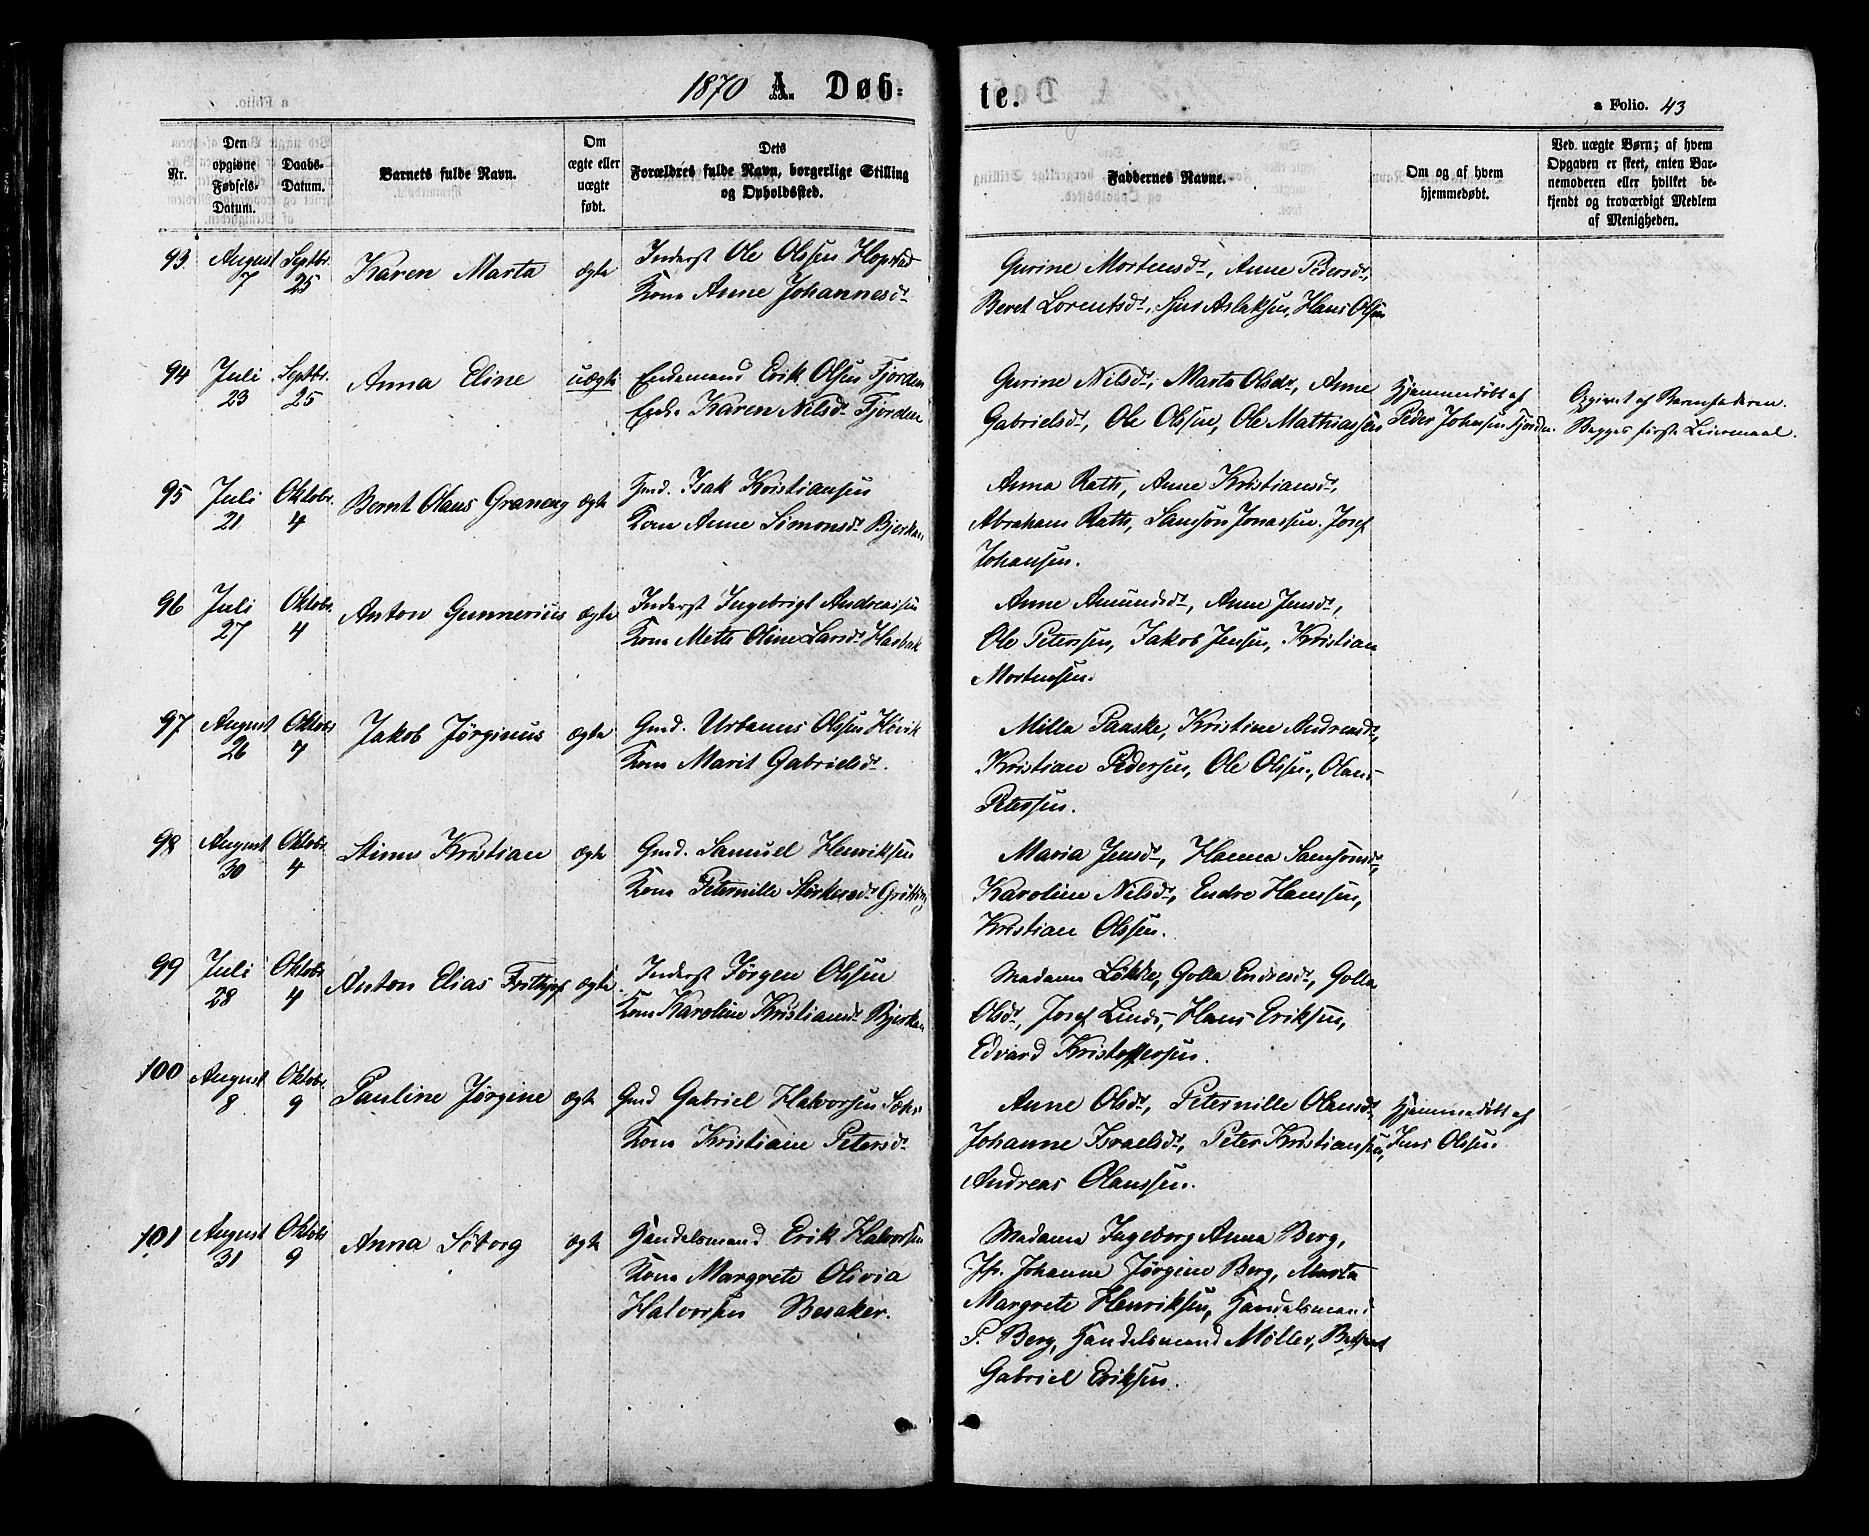 1870 A. Døb-
te.
a Folio. 43
Nr.
Den opgivne Fødsels-Datum.
Daabs-Datum.
Barnets fulde Navn.
Om ægte eller uægte født.
Dets Forældres fulde Navn, borgerlige Stilling og Opholdssted.
Faddernes Navne.
Om og af hvem hjemmedøbt.
Ved uægte Børn; af hvem Opgaven er skeet, enten Barnemoderen eller hvilket bekjendt og troværdigt Medlem af Menigheden.
93. August 7 Septbr. 25 Karen Marta ægte
Inderst Ole Olssen Hopstad
Kone Anne Johannesdt.
Gurine Mortensdt, Anne Pedersdt,
Beret Lorentsdt, Sjur Aslaksen, Hans Olsen
94 Juli 23 Septbr. 25 Anna Eline uægte
Enkemand Erik Olsen Fjorden
Enke Karen Nilsdt Fjorden
Gurine Nilsdt, Marta Olsdt, Anne
Gabrielsdt, Ole Olssen, Ole Mathiassen
Hjemmedøbt af
Peder Johnsen Fjorden.
Opgivet af Barnefaderen.
Begges første Leiermaal.
95 Juli 21 Oktobr. 4 Bernt Olaus Graneng ægte
Gmd. Isak Kristiansen
Kone Anne Simonsdt Bjerkan
Anna Rath, Anne Kristiansdt,
Abraham Rath, Samson Jonassen, Josef
Johansen.
96 Juli 27 Oktobr. 4 Anton Gunnerius ægte
Inderst Ingebrigt Andreassen
Kone Mette Oline Larsdt Hasbak
Anne Amundsdt, Anne Jensdt,
Ole Peterssen, Jakob Jensen, Kristian
Mortensen.
97 August 26 Oktobr 4 Jakob Jørginus ægte
Gmd. Urbanus Olssen Høvik
Kone Marit Gabrielsdt.
Milla Paaske, Kristine Andreasdt,
Kristian Pedersen, Ole Olssen, Olaus
Petersen.
98 August 30 Oktobr. 4 Kristian ægte
Gmd. Samuel Henriksen
Kone Peternille
Maria Jensdt, Hanna Samsonsdt,
Karoline Nilsdt, Endre Hanssen,
Kristian Olssen.
99 Juli 28 Oktobr 4 Anton Elias Frithjof ægte
Inderst Jørgen Olssen
Kone Karoline Kristiansdt Bjerkan
Madame Løkke, Golla Endresdt, Golla
Olsdt, Josef Lind, Hans Eriksen,
Edvard Kristoffersen.
100 August 8 Oktobr. 9 Pauline Jørgine ægte
Gmd Gabriel Halvorsen
Kone Kristiane Petersdt
Anne Olsdt, Peternille Olausdt,
Johanne Israelsdt, Peter Kristiansen,
Andreas Olaussen.
Hjemmedøbt af
Jens Olssen.
101 August 31 Oktobr 9 Anna Söborg ægte
Handelsmand Erik Halvorsen
Kone Margrete Olivia
Halvorsen Besaker.
Madame Ingeborg Anna Berg,
Jfr. Johanne Jørgine Berg, Marta
Margrete Henriksen, Handelsmand
P. Berg, Handelsmand Møller,
Gabriel Eriksen.